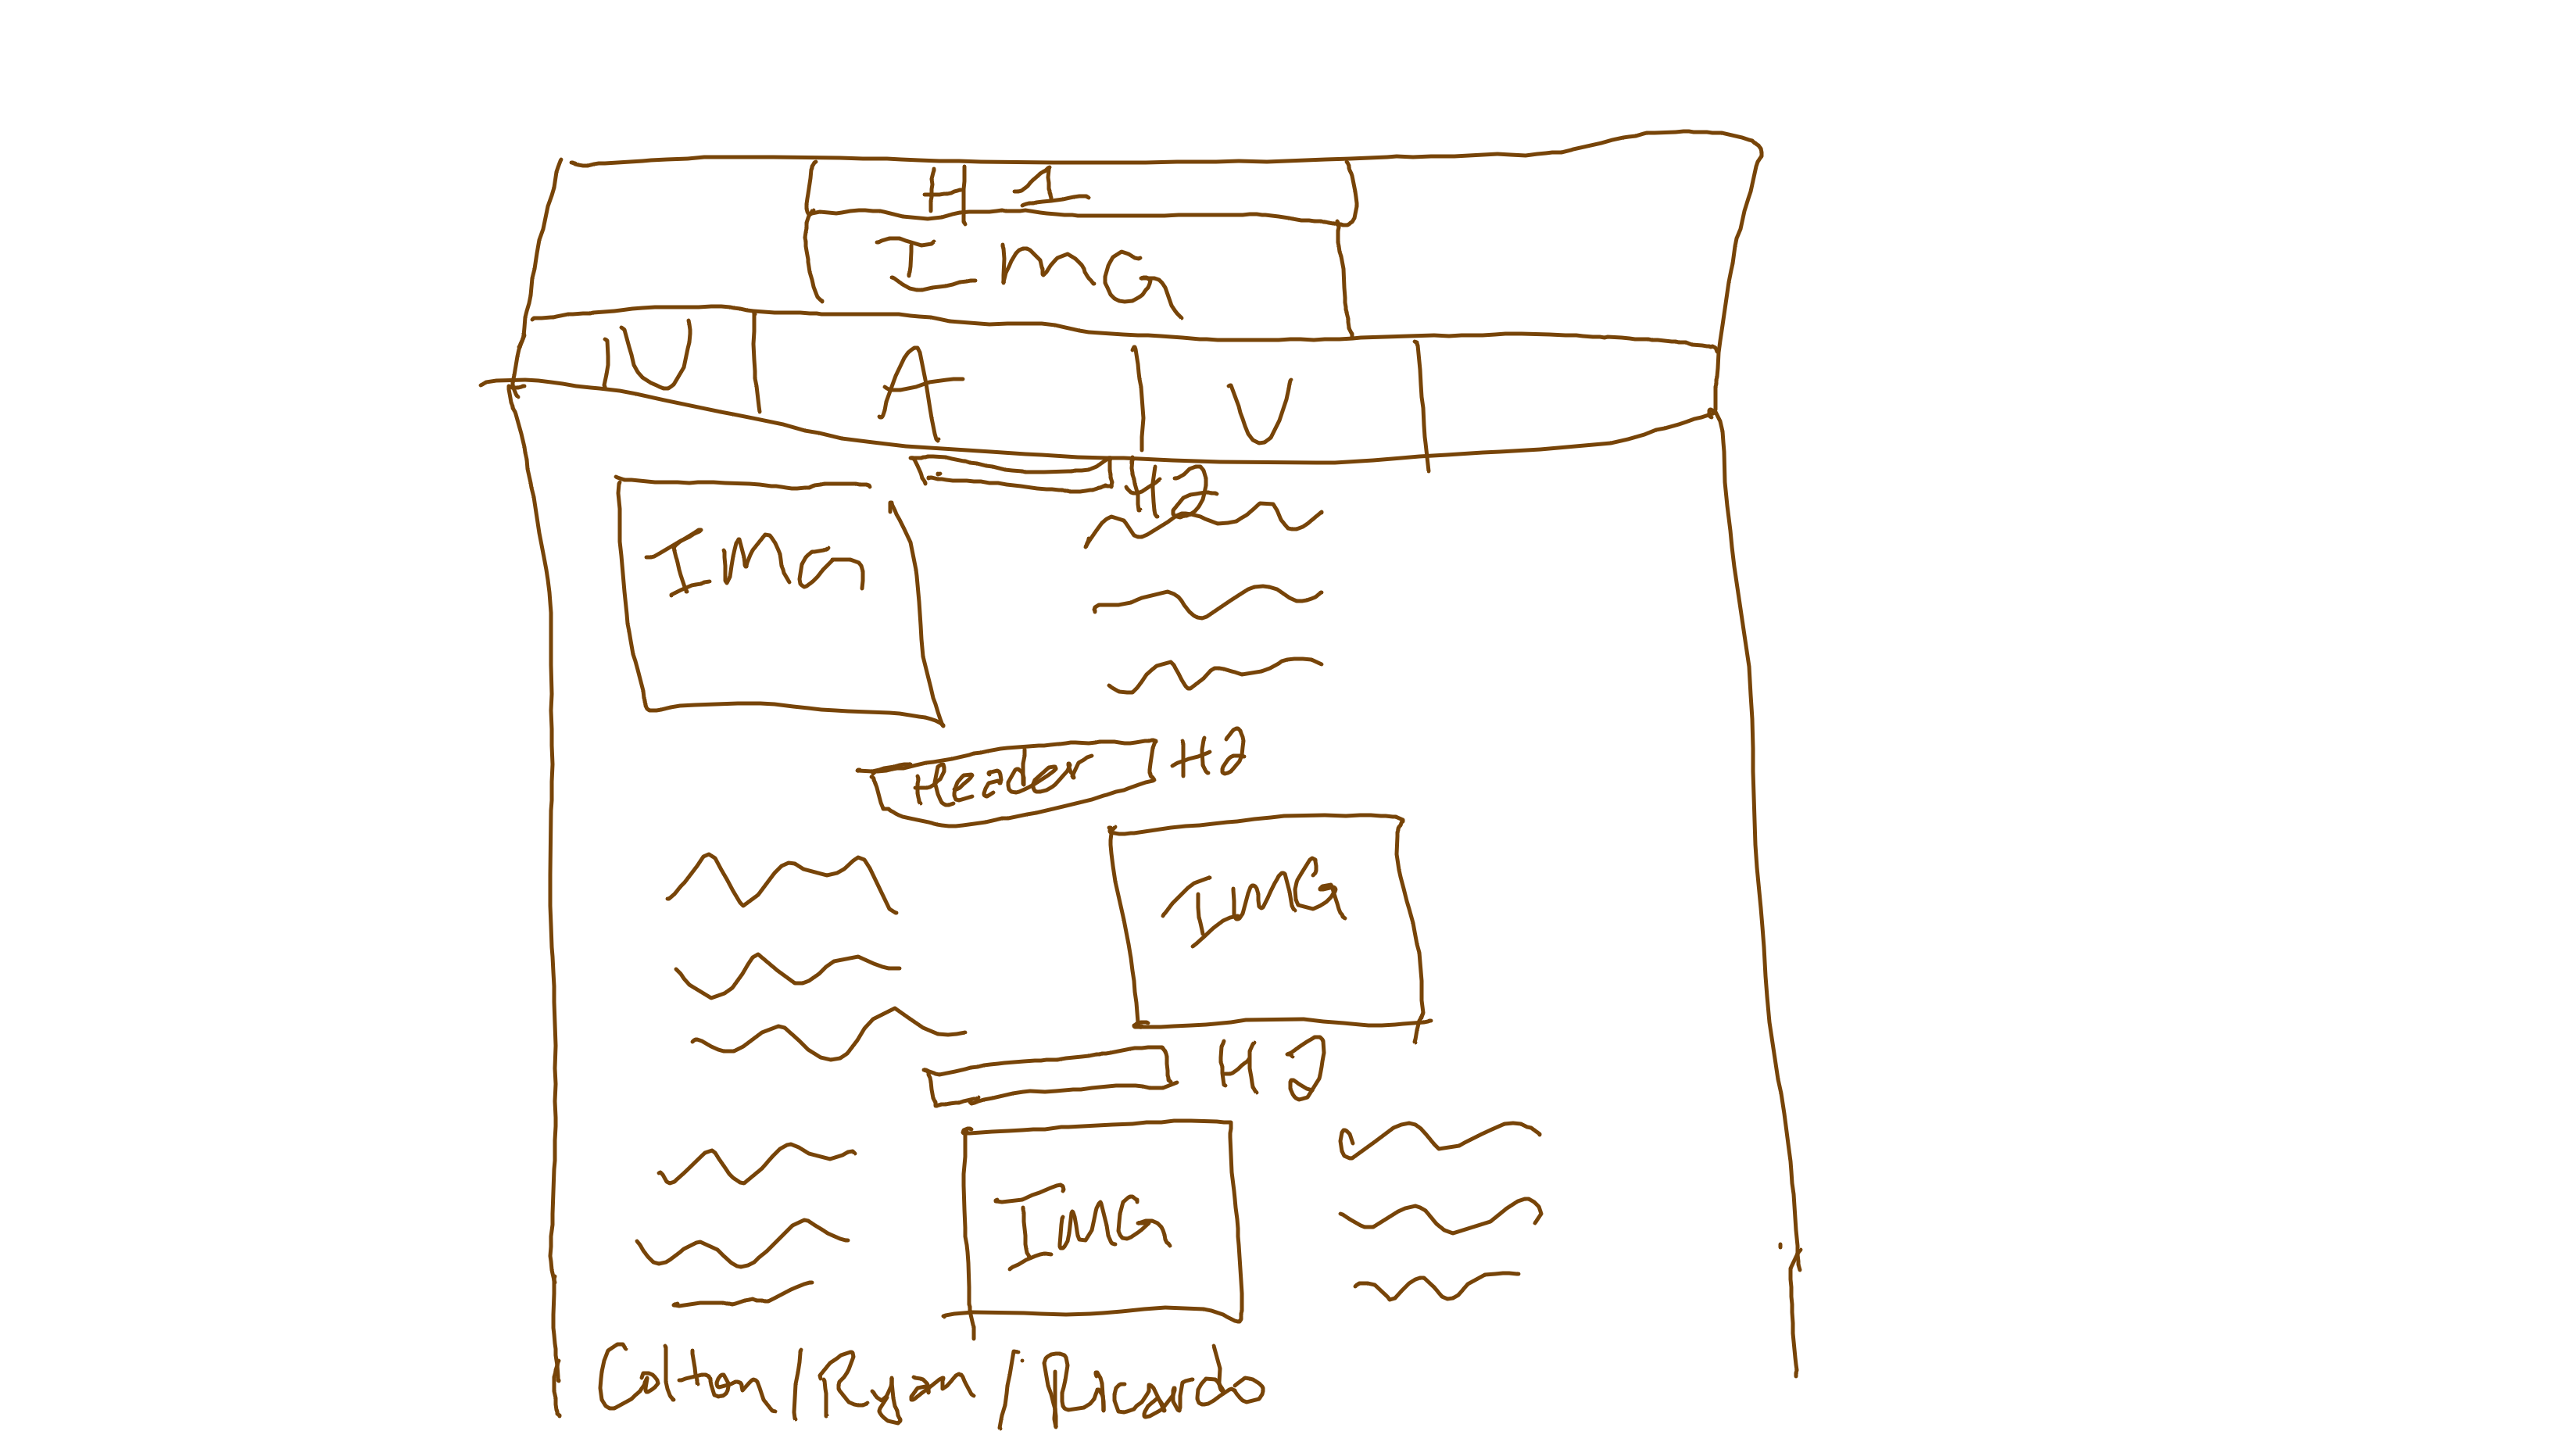 H 1
IMG
N A V
H2
IMG
Header H2
IMG
H2
IMG
Colton/Ryan/Ricardo